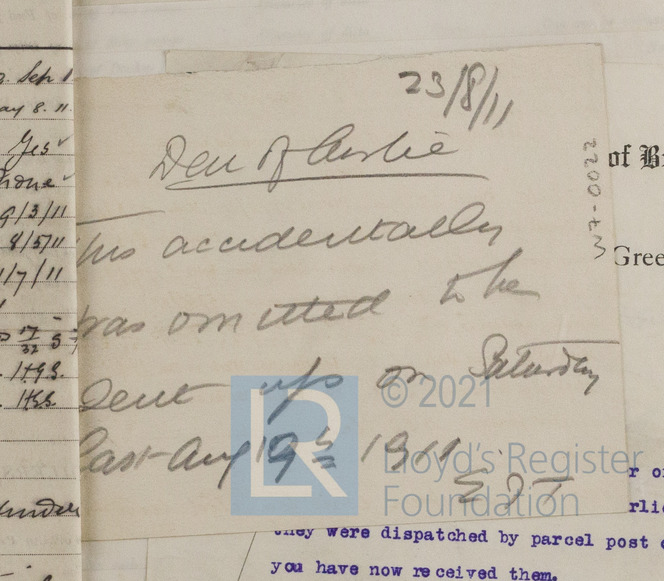 . Sep 1
ay 8. 11
Yes
none
9/3/11
8/5/11
1/7/11
17/32 S
23/8/11
Den of Airlie
This accidentally
was omitted to be
sent up on Saturday
last Aug 19th 1911
W7-0022
of B
Gree
LR
© 2021
Lloyd's Register
Foundation
r o
rlie
they were dispatched by parcel post
you have now received them.